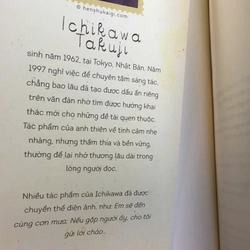 © henyhakaigi.com
Ichikawa
Takuji
sinh năm 1962, tại Tokyo, Nhật Bản. Năm
1997 nghỉ việc để chuyên tâm sáng tác,
chẳng bao lâu đã tạo được dấu ấn riêng
trên văn đàn nhờ tìm được hướng khai
thác mới cho những đề tài quen thuộc.
Tác phẩm của anh thiên về tình cảm nhẹ
nhàng, nhưng thấm thía và bền vững,
thường để lại nhớ thương lâu dài trong
lòng người đọc.
Nhiều tác phẩm của Ichikawa đã được
chuyển thể điện ảnh, như: Em sẽ đến
cùng cơn mưa; Nếu gặp người ấy, cho tôi
gửi lời chào...